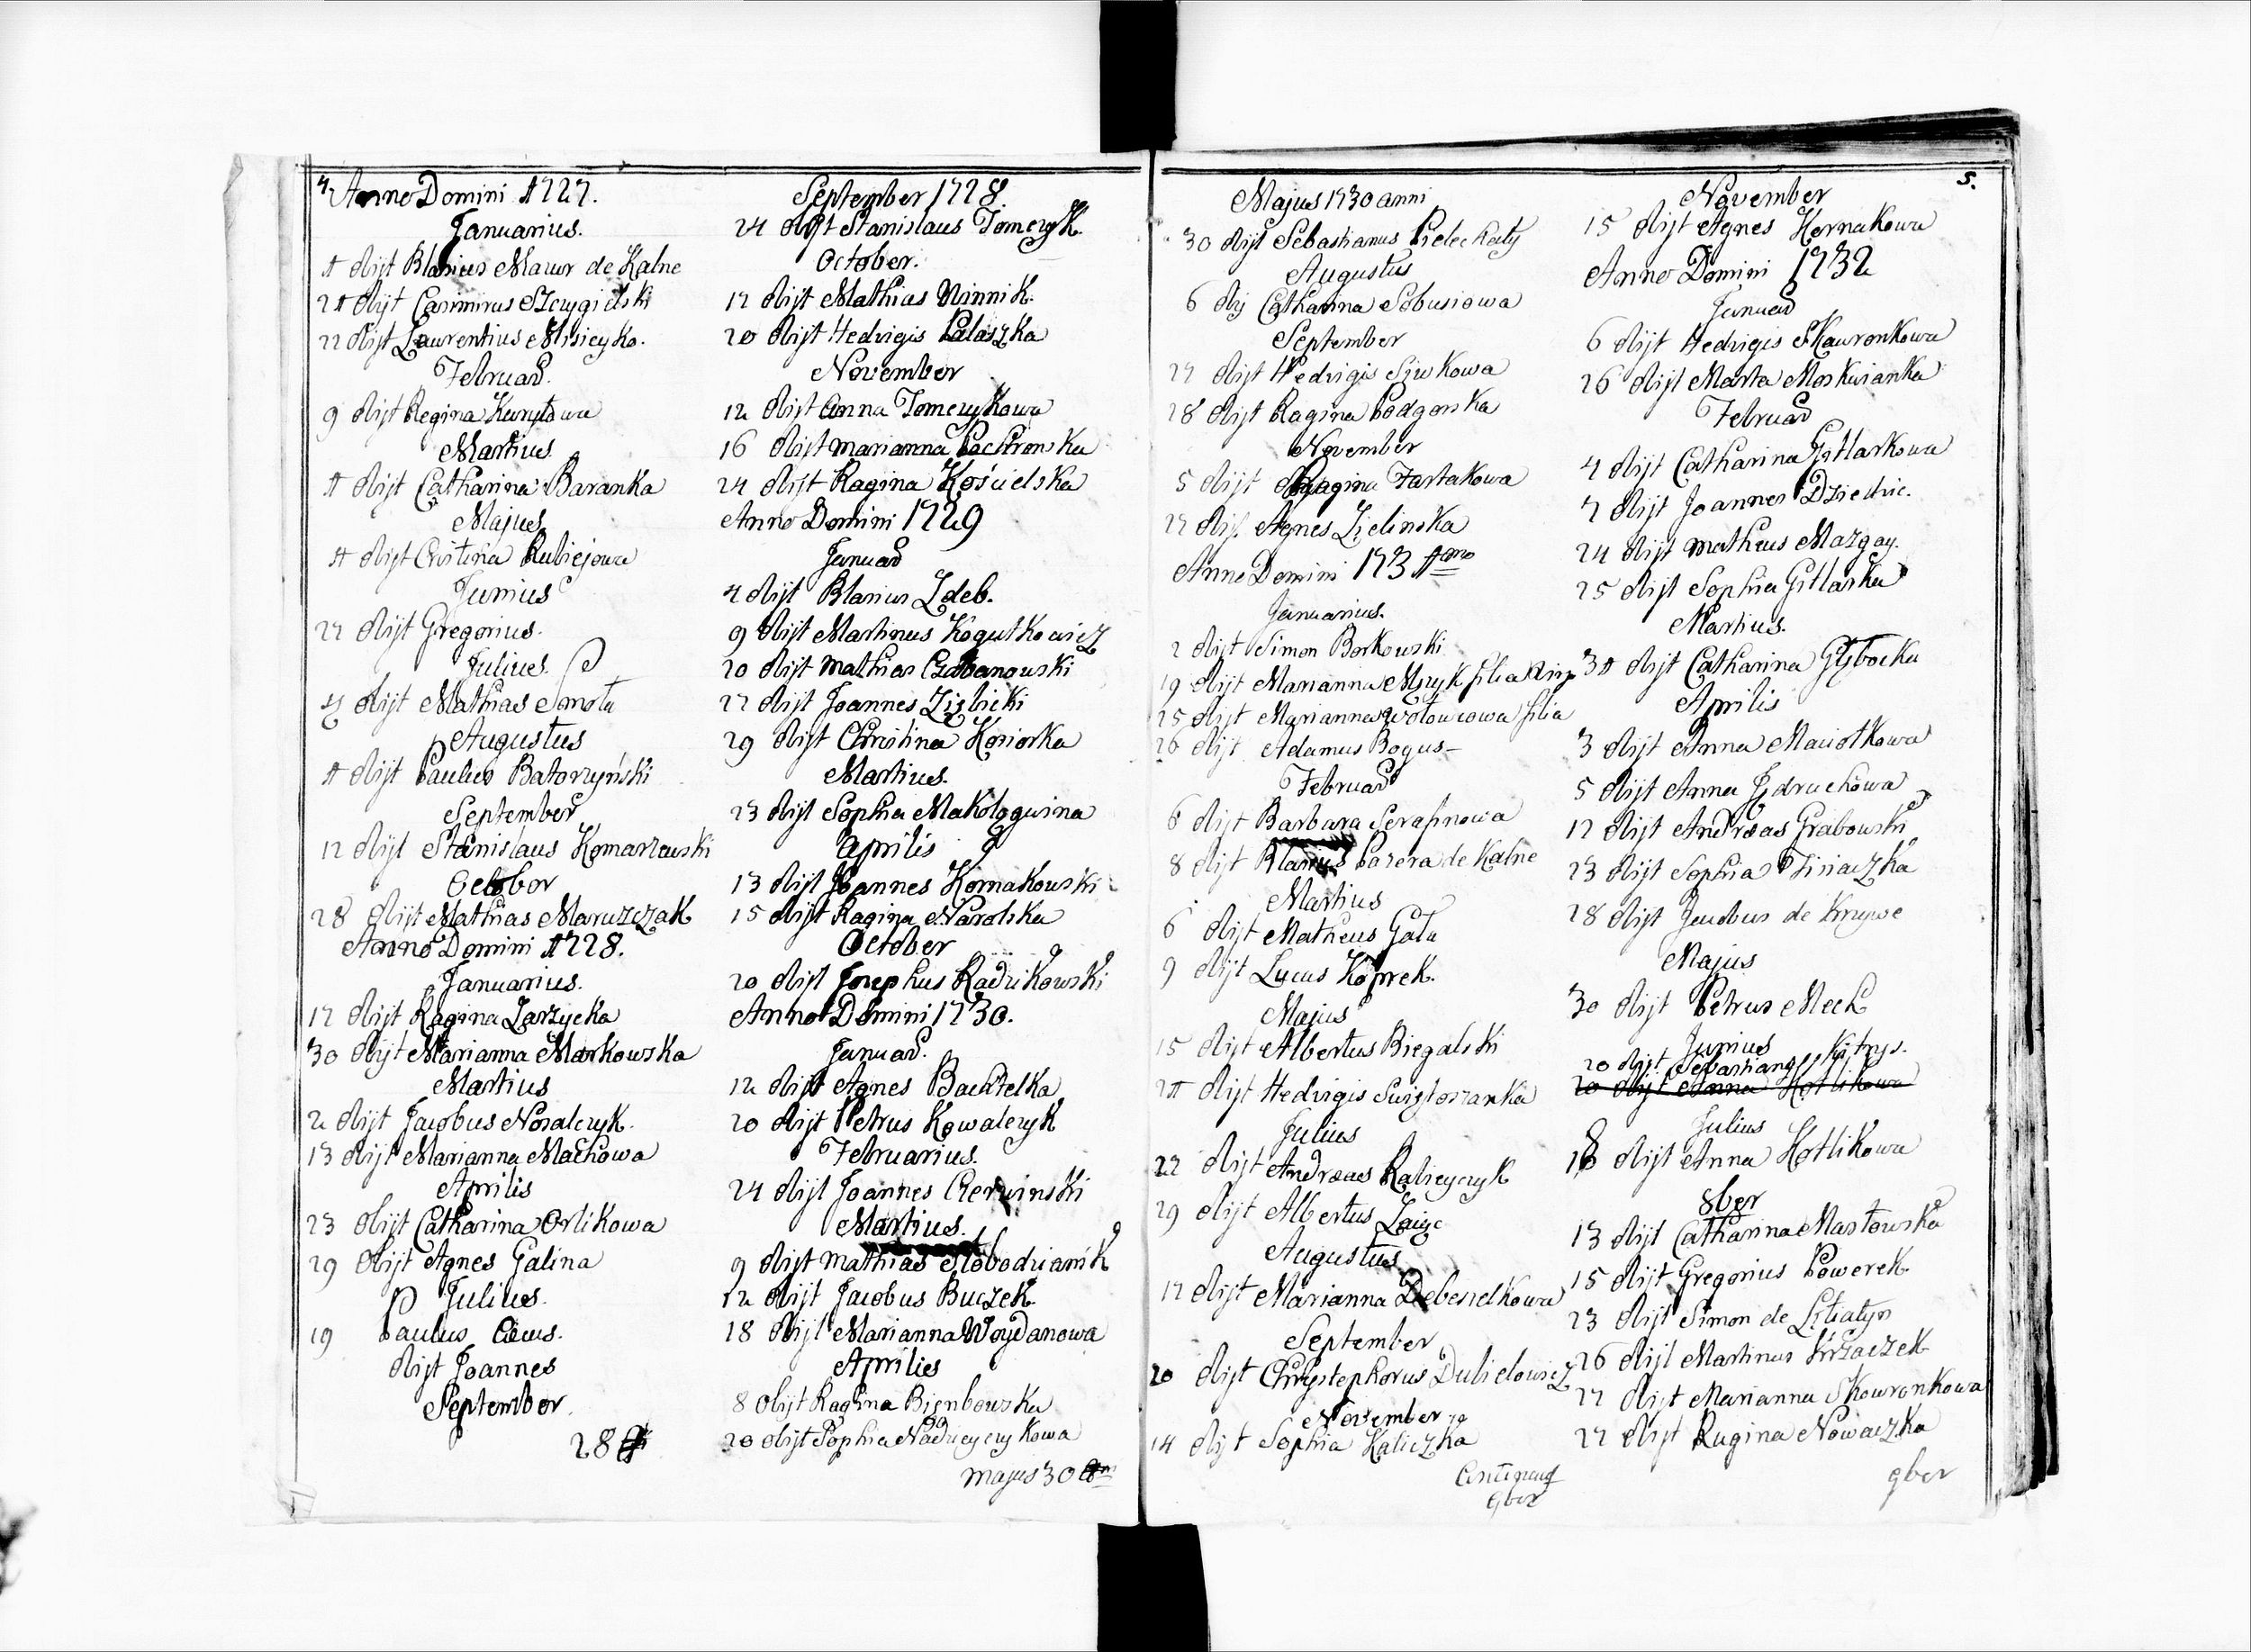 4
Anno Domini 1727.
Januarius.
1 obijt Blasius Mazur de Kalne
21 obijt Casimirus Szczygielski
22 obijt Laurentius Misieyko.
Februar.
9 obijt Regina Kuryłowa
Martius
1 obijt Catharina Baranka
Majus
1 obijt Cristina Kubiejowa
Junius
27 obijt Gregorius.
Julius.
4 obijt Mathias Smoła
Augustus
1 obijt Paulus Batorzyński
September
12 obijt Stanislaus Komarzewski
October
28 obijt Mathias Maruszczak
Anno Domini 1728.
Januarius.
17 obijt Ragina Zarzycka
30 obijt Marianna Markowska
Martius
2 obijt Jacobus Nosalczyk.
13 obijt Marianna Machowa
Aprilis
23 obijt Catharina Orlikowa
29 obijt Agnes Galina
Julius.
19 Paulus
obijt Joannes
September
28
September 1728.
24 obijt Stanislaus Tomczyk.
October.
17 obijt Mathias Ninnik.
20 obijt Hedvigis Palaszka
November
12 obijt Anna Tomczykowa
16 obijt Marianna Pachronska
24 obijt Ragina Kościelska
Anno Domini 1729
Januar
4 obijt Blasius Zdeb.
9 obijt Martinus Kogutkowicz
20 obijt Mathias Czabanowski
27 obijt Joannes Ziębicki
29 obijt Christina Kosiorka
Martius.
23 obijt Sophia Makologwina
Aprilis
13 obijt Joannes Kornakowski
15 obijt Ragina Narolska
October
20 obijt Josephus Radzikowski
Anno Domini 1730.
Januar.
12 obijt Agnes Bachtelka
20 obijt Petrus Kowalczyk
Februarius.
24 obijt Joannes Czerwinski
Martius.
9 obijt Mathias Słobodzianik
12 obijt Jacobus Buczek
18 obijt Marianna Woydanowa
Aprilies
8 obijt Ragina Bienbowska
20 obijt Sophia Nadzieyczykowa
Majus 30
5.
Majus 1730 anni
30 obijt Sebastianus Pielechaty
Augustus
6 obij Catharina Sobusiowa
September
27 obijt Hedvigis Siwkowa
28 obijt Ragina Podgorska
November
5 obijt Ragina Tartakowa
27 obijt Agnes Zielinska
Anno Domini 1731
Januarius.
2 obijt Simon Borkowski
19 obijt Marianna Mzyk filia
25 obijt Marianna Wołowcowa filia
26 obijt Adamus Bogus
Februar
6 obijt Barbara Serafinowa
8 obijt Blasius Parera de Kalne
Martius
6 obijt Matheus Gała
9 obijt Lucas Koprek.
Majus
15 obijt Albertus Biegalski
21 obijt Hedvigis Swiętoszanka
Julius
22 obijt Andreas Kalicyczyk
29 obijt Albertus Zaięc
Augustus
17 obijt Marianna Debesielkowa
September
20 obijt Chrystephorus Dubielowicz
November
14 obijt Sophia Kaliczka
9ber
November
15 obijt Agnes Kornakowa
Anno Domini 1732
Januar
6 obijt Hedvigis Skawronkowa
26 obijt Marta Moskwianka
Februar
4 obijt Catharina Gitlarkowa
7 obijt Joannes Dziedzic.
24 obijt Matheus Mazgay.
25 obijt Sophia Gitlarka
Martius.
31 obijt Catharina Głębocka
Aprilis
3 obijt Anna Maciołkowa
5 obijt Anna Jędruchowa
17 obijt Andreas Grabowski
23 obijt Sophia Tisiaczka
28 obijt Jacobus de Krzywe
Majus
30 obijt Petrus Mech
Junius
20 obijt Sebastianus Kitrys.
20 obijt Anna Kotlikowa
Julius
18 obijt Anna Kotlikowa
8ber
13 obijt Catharina Masłowska
15 obijt Gregorius Powerek
23 obijt Simon de Litiatyn
26 obijt Martinus Kurzaczek
27 obijt Marianna Skowronkowa
27 obijt Rugina Nowaczka
9ber